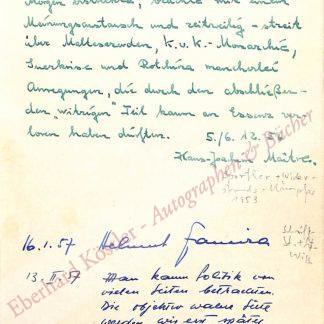 Morgen erstreckte, brachte mir einen
Meinungsaustausch und zeitweilig -streit
über Malteserorden, K.u.K.-Monarchie,
und Rotchina mancherlei
Anregungen, die durch den abschließen-
den „witzigen" Teil kaum an Essenz ver-
loren haben dürften. 5./6. 12. 56
Hans-Joachim Maitre.
+ Wider-
stands-Kämpfer
1953
Eberhard Köstler - Autographen & Bücher
16.1.57 Helmut
13. II. 57 Man kann Politik von
vielen Seiten betrachten.
Die objektiv wahre Seite
werden wir erst später